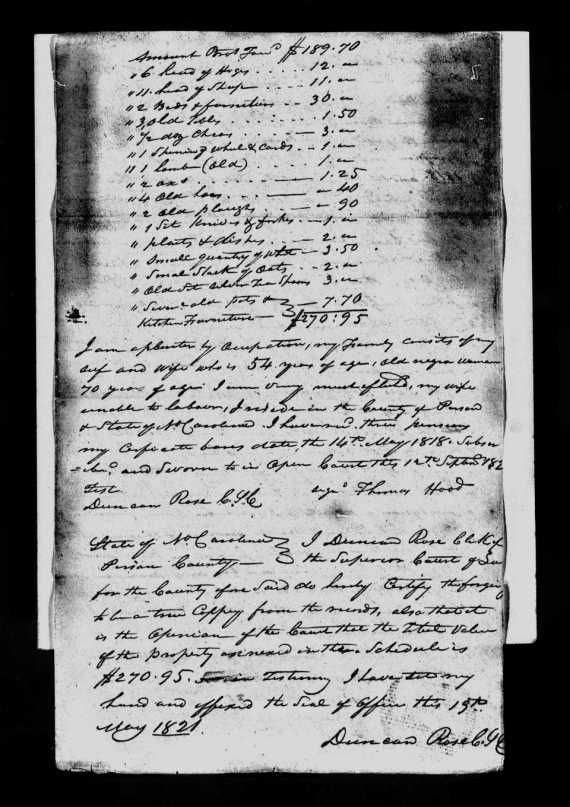 Amount Brot Forwd $189.70
" 6 head of Hogs . . . . . 12. "
" 11. head of Sheep . . . . 11. "
" 2 Beds & furnitures . . . 30. "
" 3 old Tables . . . . . 1.50
" 1/2 doz Chears . . . 3. "
" 1 Spinning wheel & Cards . . 1. "
" 1 Loomb (old) . . . 1. "
" 2 axs . . . . 1.25
" 4 old hoes . . " 40
" 2 old ploughs . . " 90
" 1 Set Knives & forkes . . 1. "
" plaits & dishes . . . 2. "
" Small quantity of Wht 3.50
" Small Stack of Oats . . 2. "
" Old Set Silver Tea Spoons 3. "
" Several old pots & 7.70
Kitchen Furniture $270:95
I am a planter by Occupation, my Family consists of my
self and Wife who is 54 years of age, old negro woman
70 years of age I am very much afflicted, my wife
unable to labour, I reside in the County of Person
& State of No Carolina I have recd three pensions
my Certificate bares date, the 14th May 1818. Subscr
=ibed and Sworn to in Open Court this 12th Septr 182
Test
Duncan Rose C.S.C signd Thomas Hood
State of No Carolina I Duncan Rose Clerk of
Person County the Superior Court of Law
for the County fore Said do hereby Certify the forgoing
to be a true Coppey from the records, also that it
is the Openion of the Court that the total Value
of the Property annexed in the Schedule is
$270.95. in testimony I have set my
hand and affixed the Seal of Office this 15th
May 1821.
Duncan Rose C.S.C